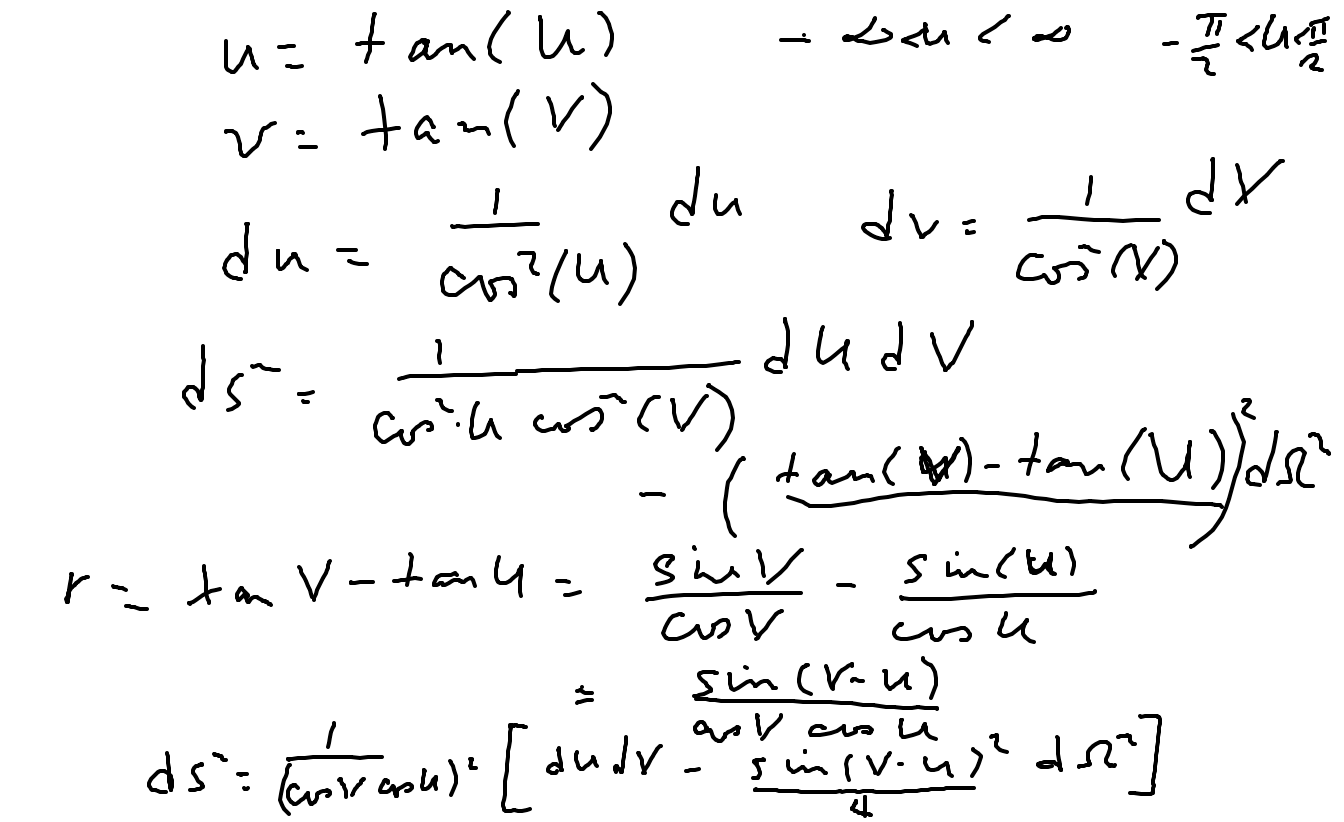 u = tan(U)   - ∞ < u < ∞   - π/2 < U < π/2
v = tan(V)
du = 1/cos²(U) dU   dv = 1/cos²(V) dV
ds² = 1/(cos² U cos²(V)) dU dV
- (tan(V) - tan(U))² dΩ²
r = tan V - tan U = sin V/cos V - sin(U)/cos U
= sin(V-U)/(cos V cos U)
ds² = 1/(cos V cos U)² [dU dV - sin(V-U)²/4 dΩ²]